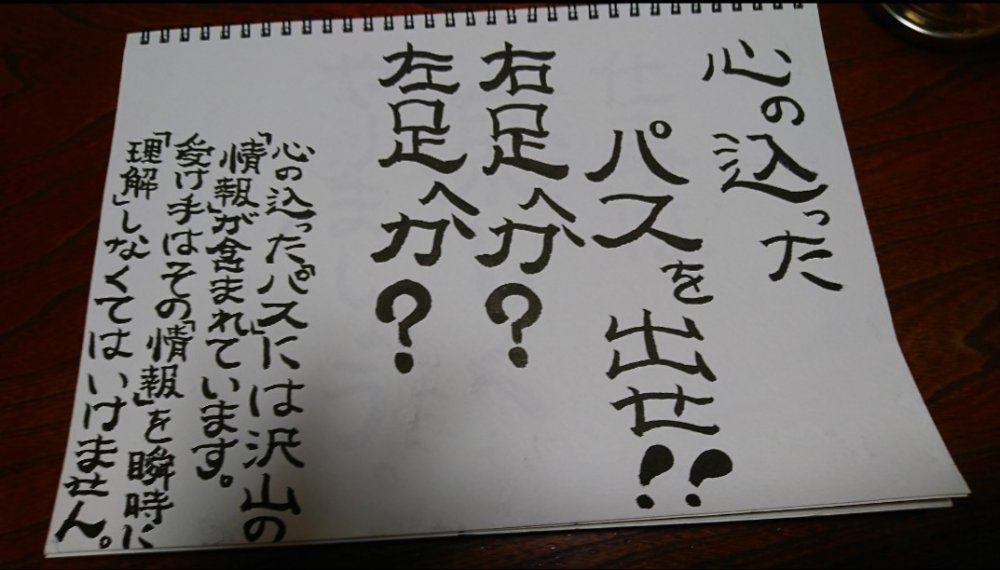 心の込った
パスを出せ!!
右足へか?
左足へか?
「心の込ったパス」には沢山の
「情報」が含まれています。
受け手はその「情報」を瞬時に
「理解」しなくてはいけません。